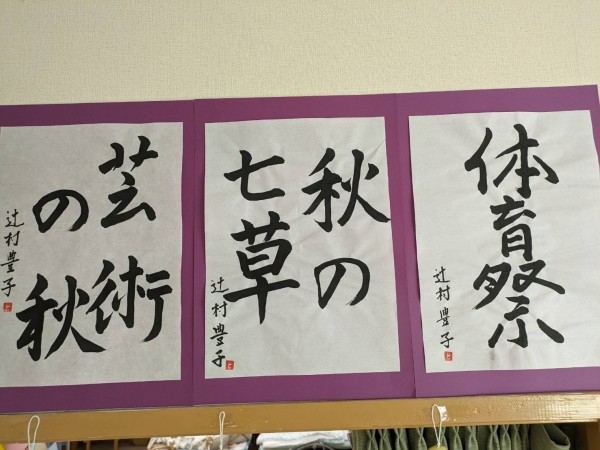 体育祭
辻村豊子
秋の
七草
辻村豊子
芸術
の秋
辻村豊子